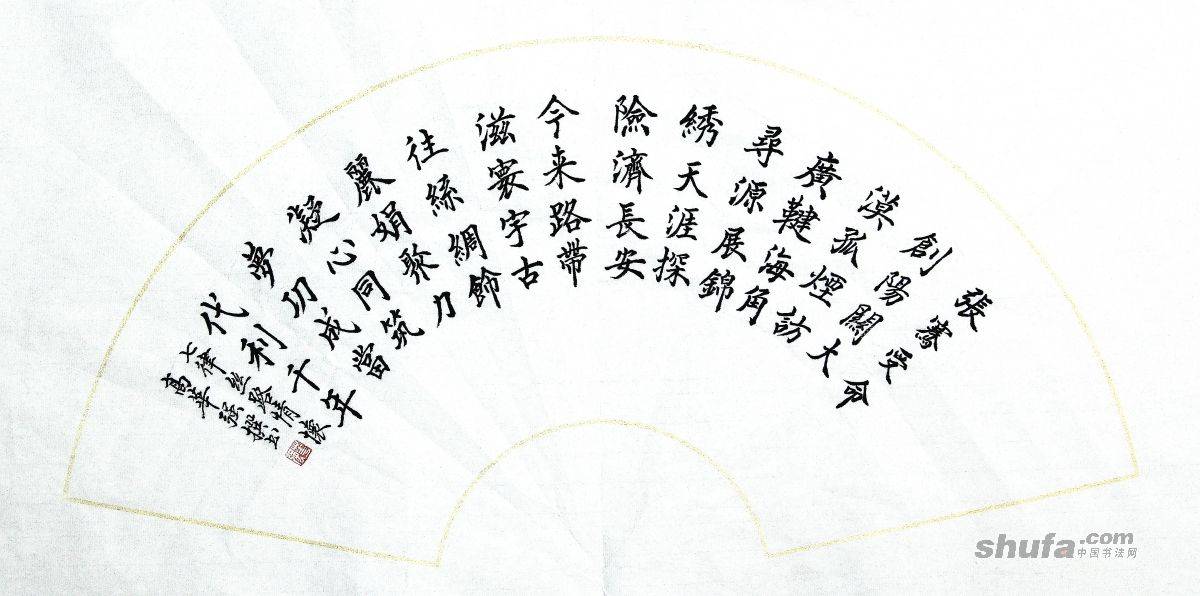 張騫受命
創陽關大
漠孤煙訪
廣鞬海角
尋源展錦
綉天涯探
險濟長安
今来路帶
滋寰宇古
往絲綢飾
麗娟聚力
凝心同筑
夢功成當
代利千年
七律丝路情懷
高華强撰书
shufa.com
中国书法网